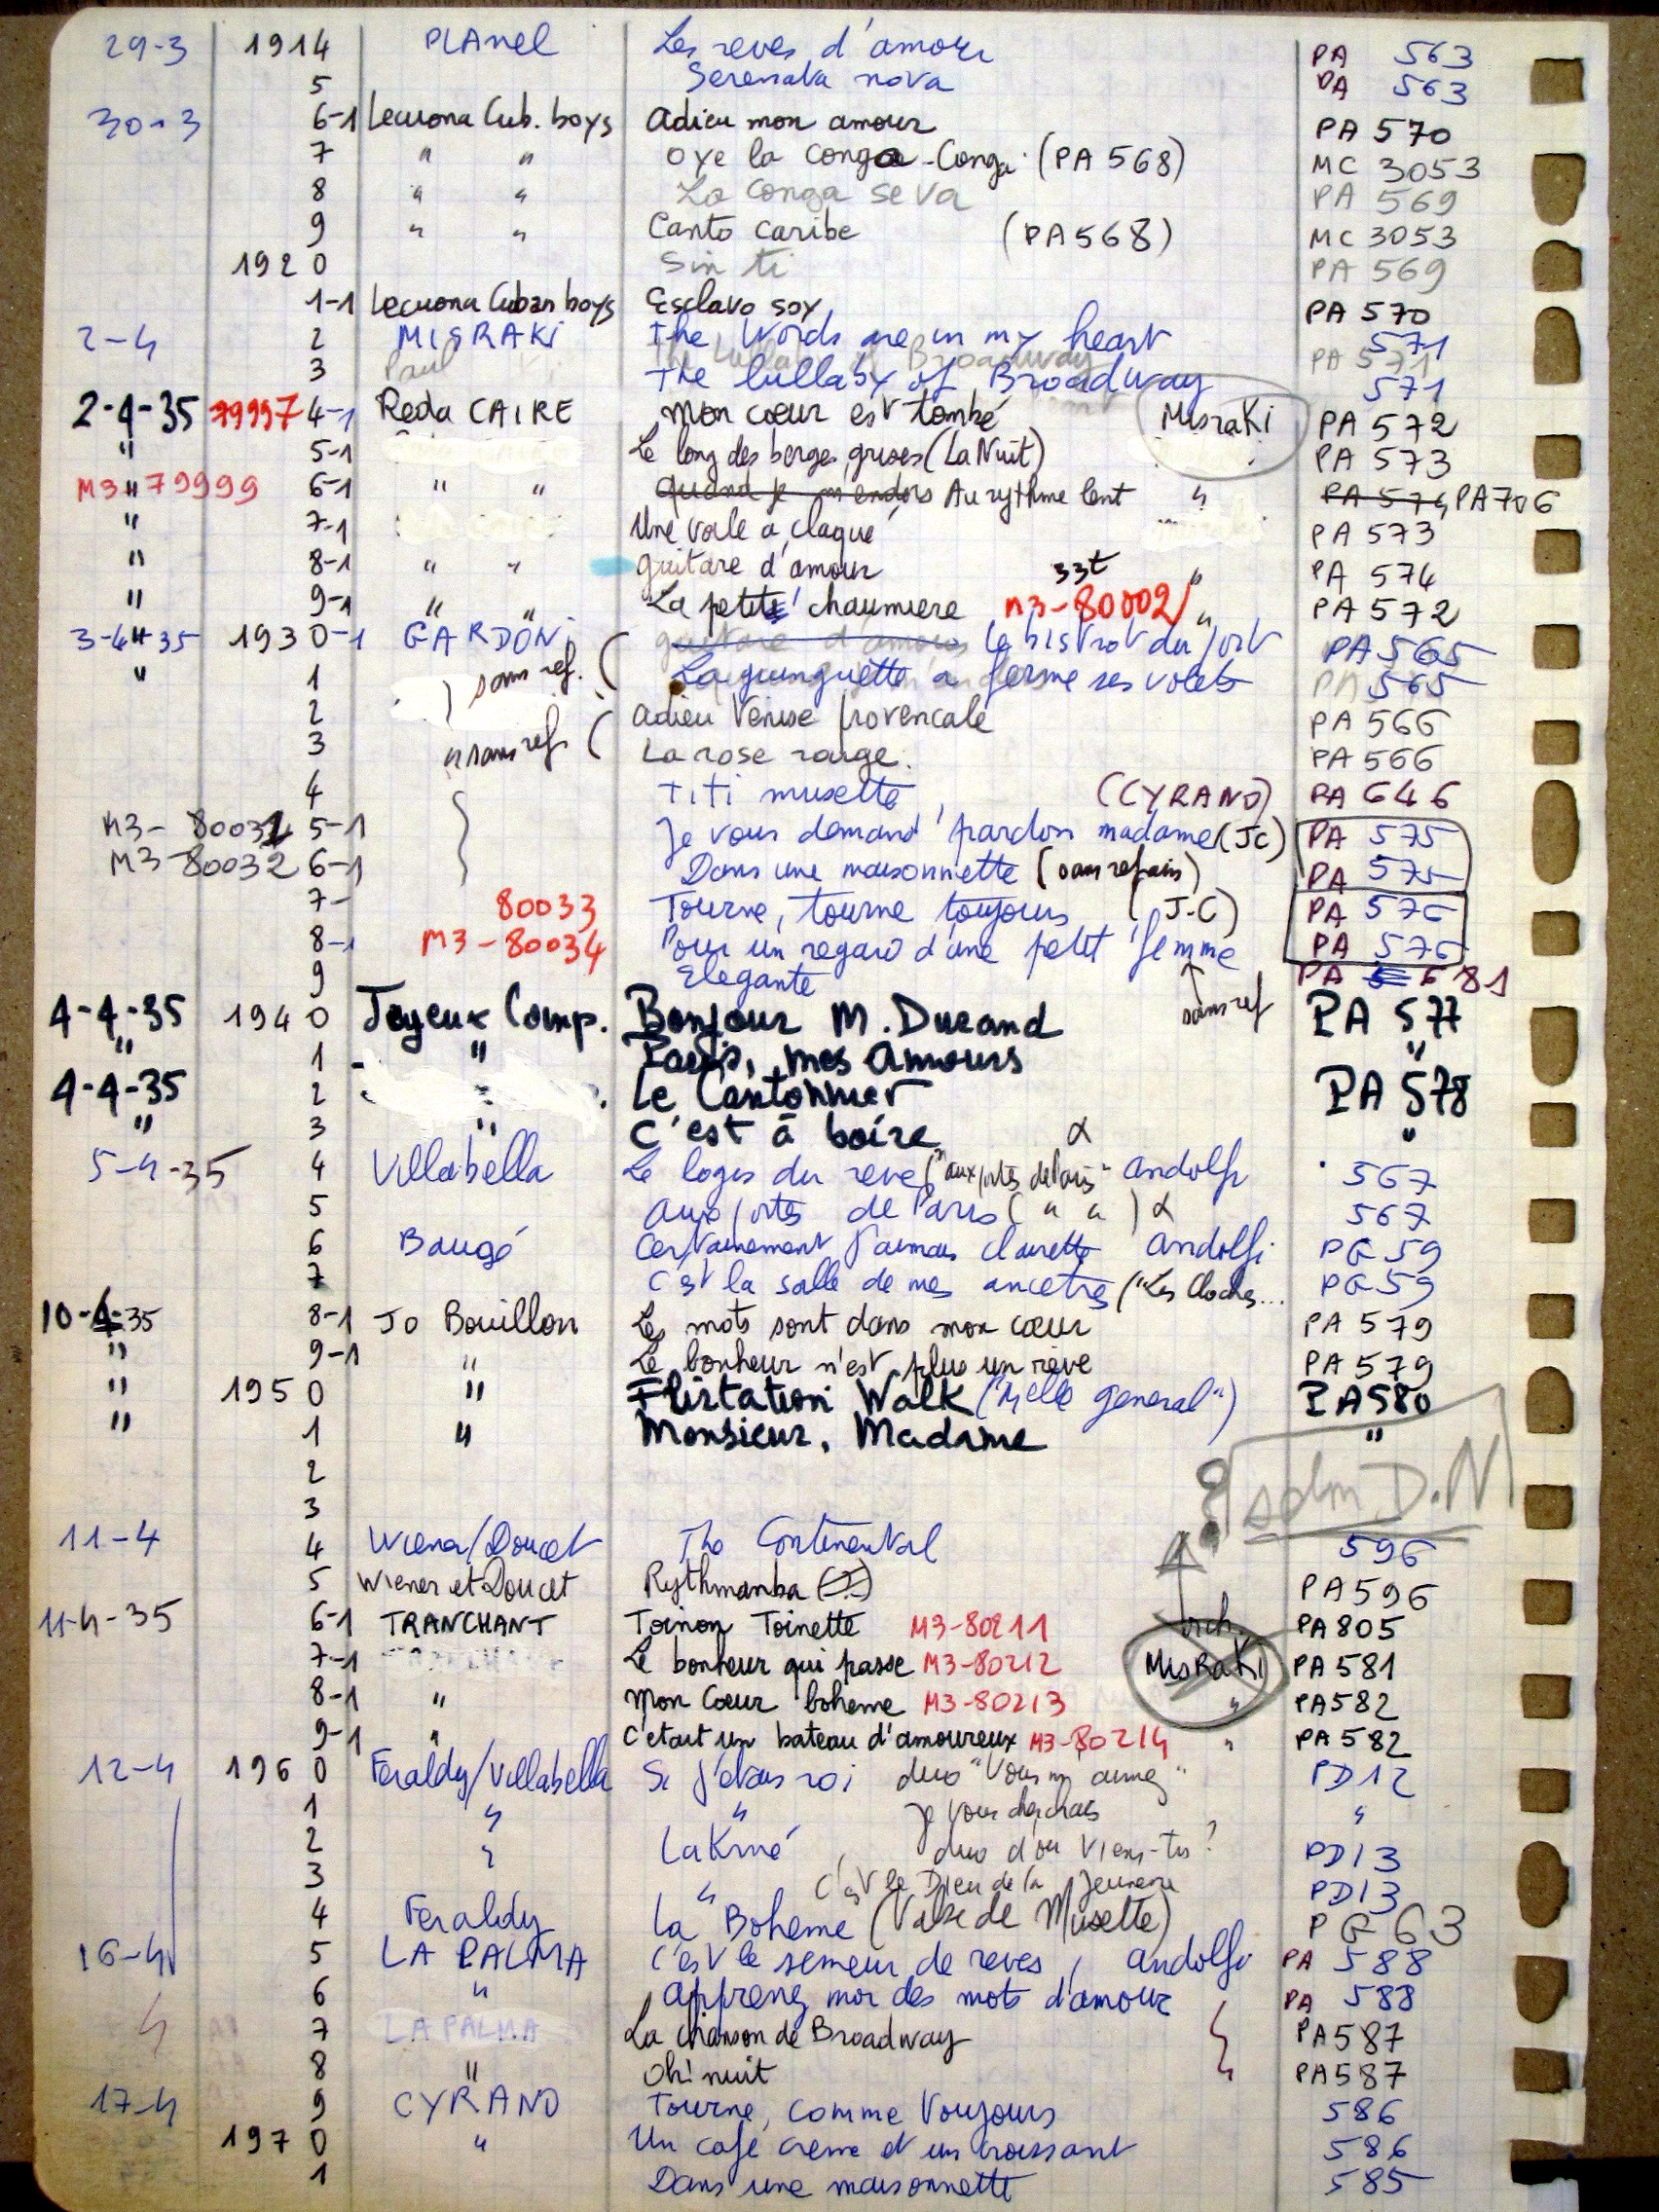 29-3 1914 PLAnel Les reves d'amour PA 563
5 Serenata nova PA 563
30-3 6-1 Lecuona Cub. boys Adieu mon amour PA 570
7 " " Oye la conga - Conga (PA 568) MC 3053
8 " " La Conga se va PA 569
9 " " Canto caribe (PA 568) MC 3053
1920 Sin ti PA 569
1-1 Lecuona Cuban boys Esclavo soy PA 570
2-4 2 MISRAKI The Words are in my heart 571
3 Paul The lullaby of Broadway PA 571 571
2-4-35 79997 4-1 Reda CAIRE Mon cœur est tombé Misraki PA 572
" 5-1 Le long des berges grises (La Nuit) PA 573
M3-79999 " 6-1 " " Quand je m'endors Au rythme lent " PA 574 PA 706
" 7-1 Une voile a claqué PA 573
" 8-1 " " guitare d'amour " PA 574
33t
" 9-1 " " La petite chaumiere M3-80002 " PA 572
3-4-35 1930-1 GARDONi guitare d'amour Le bistrot du port PA 565
" 1 sans ref. ( La guinguette a fermé ses volets PA 565
2 Adieu Venise provencale PA 566
3 " sans ref. ( La rose rouge. PA 566
4 Titi musette (CYRANO) PA 646
M3-80031 5-1 Je vous demand' pardon madame (JC) PA 575
M3-80032 6-1 Dans une maisonnette (sans refrain) PA 575
7- 80033 Tourne, tourne toujours (J-C) PA 576
8-1 M3-80034 Pour un regard d'une petit' femme PA 576
9 Elegante sans ref PA 681
4-4-35 1940 Joyeux Comp. Bonjour M. Durand PA 577
" 1 " Paris, mes Amours "
4-4-35 2 " Le Cantonnier PA 578
" 3 " C'est à boire "
5-4-35 4 Villabella Le logis du reve ("aux portes de Paris" α andolfi 567
5 Aux portes de Paris ( " " ) α 567
6 Baugé Certainement j'aimais clairette andolfi PG 59
7 C'est la salle de mes ancetres ("Les Cloches... PG 59
10-4-35 8-1 Jo Bouillon Les mots sont dans mon cœur PA 579
" 9-1 " Le bonheur n'est plus un rêve PA 579
" 1950 " Flirtation Walk ("Hello general") PA 580
" 1 " Monsieur, Madame "
2
3 D.N
11-4 4 Wiener/Doucet The Continental 596
5 Wiener et Doucet Rythmanba PA 596
11-4-35 6-1 TRANCHANT Toinon Toinette M3-80211 orch. PA 805
7-1 Le bonheur qui passe M3-80212 MisRaKi PA 581
8-1 " Mon Cœur boheme M3-80213 " PA 582
9-1 " C'etait un bateau d'amoureux M3-80214 " PA 582
12-4 1960 Feraldy/Villabella Si j'étais roi duo "Vous m'aimez" PD 12
1 " " je vous cherchais "
2 " Lakmé duo d'où viens-tu? PD 13
3 " C'est le Dieu de la Jeunesse PD 13
4 Feraldy La Boheme (Valse de Musette) PG 63
16-4 5 LA PALMA C'est le semeur de reves, andolfi PA 588
6 " Apprenez moi des mots d'amour PA 588
7 LA PALMA La chanson de Broadway PA 587
8 " Oh! nuit PA 587
17-4 9 CYRANO Tourne, comme toujours 586
1970 " Un café creme et un croissant 586
1 Dans une maisonnette 585